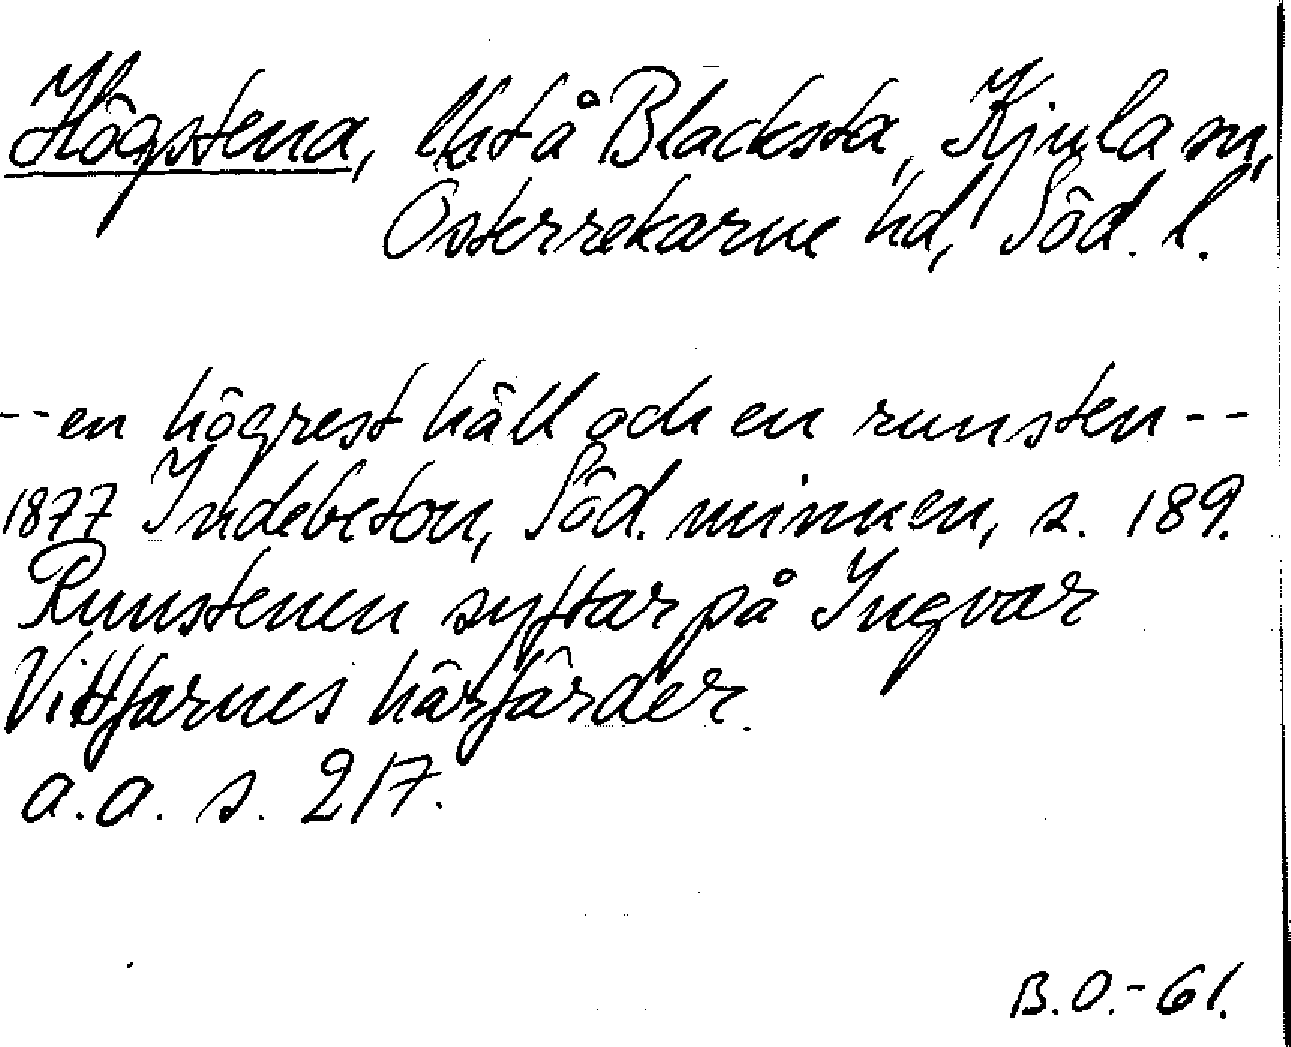 Högstena, lht å Blacksta, Kjula sn,
Österrekarne hd, Söd. l.
--en högrest häll och en runsten--
1877 Indebetou, Söd. minnen, s. 189.
Runstenen syftar på Ingvar
Vittfarnes härfärder.
a.a. s. 217.
B.O.-61.